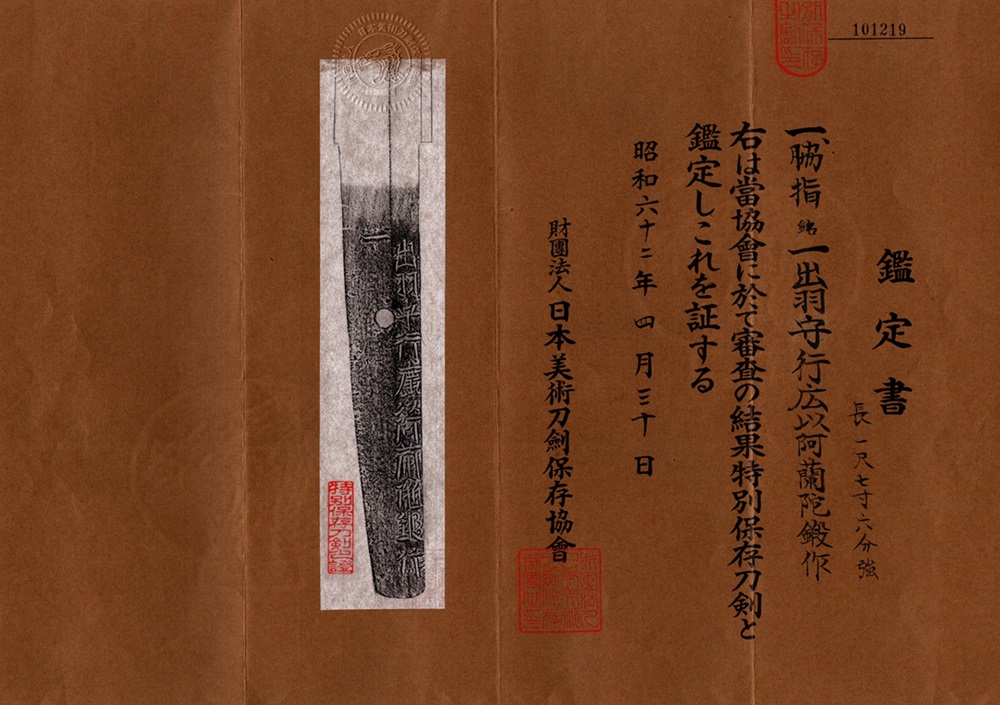 101219
鑑定書
長一尺七寸六分強
一、脇指 銘 一出羽守行広以阿蘭陀鍛作
右は當協會に於て審査の結果特別保存刀剣と
鑑定しこれを証する
昭和六十二年四月三十日
財團法人日本美術刀劍保存協會
特別保存刀剣之證